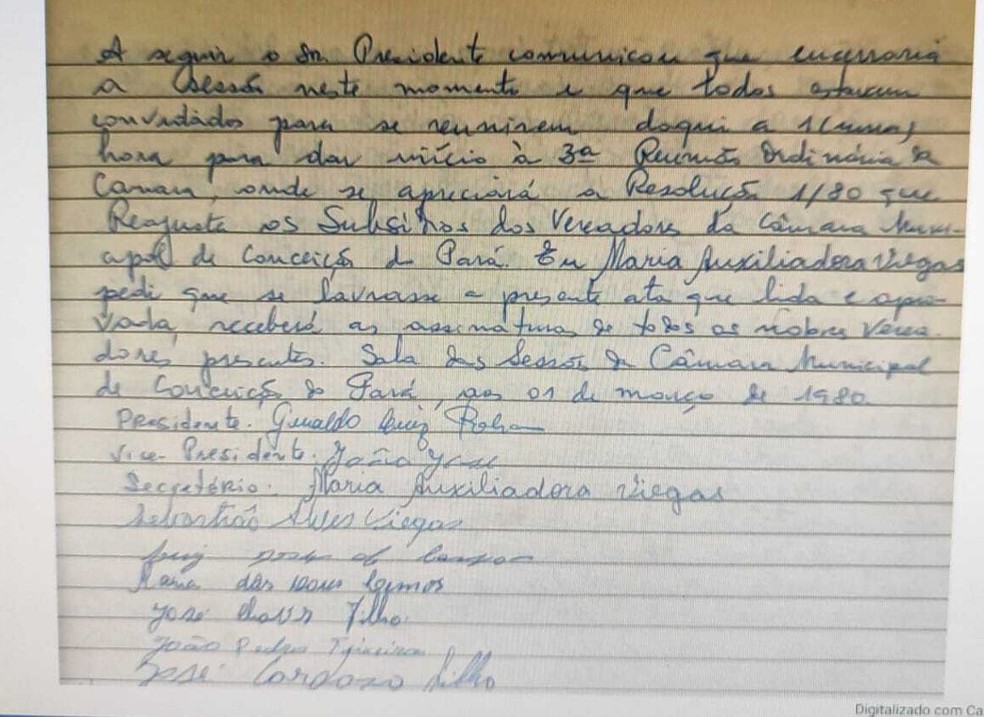 A seguir o Sr. Presidente comunicou que encerraria
a sessão neste momento e que todos estavam
convidados para se reunirem daqui a 1(uma)
hora para dar início à 3ª Reunião Ordinária da
Câmara, onde se apreciará a Resolução 1/80 que
Reajusta os Subsídios dos Vereadores da Câmara Muni-
cipal de Conceição do Pará. Eu Maria Auxiliadora Viegas
pedi que se lavrasse a presente ata que lida e apro-
vada, receberá as assinaturas de todos os nobres Verea-
dores presentes. Sala das Sessões da Câmara Municipal
de Conceição do Pará, aos 01 de março de 1980.
Presidente. Geraldo Luiz
Vice-Presidente. João José
Secretário. Maria Auxiliadora Viegas
Sebastião Alves Viegas
Luiz de Campos
Maria das Lemos
José Chaves Filho.
João Pedro Teixeira
José Cardoso Filho
Digitalizado com Ca